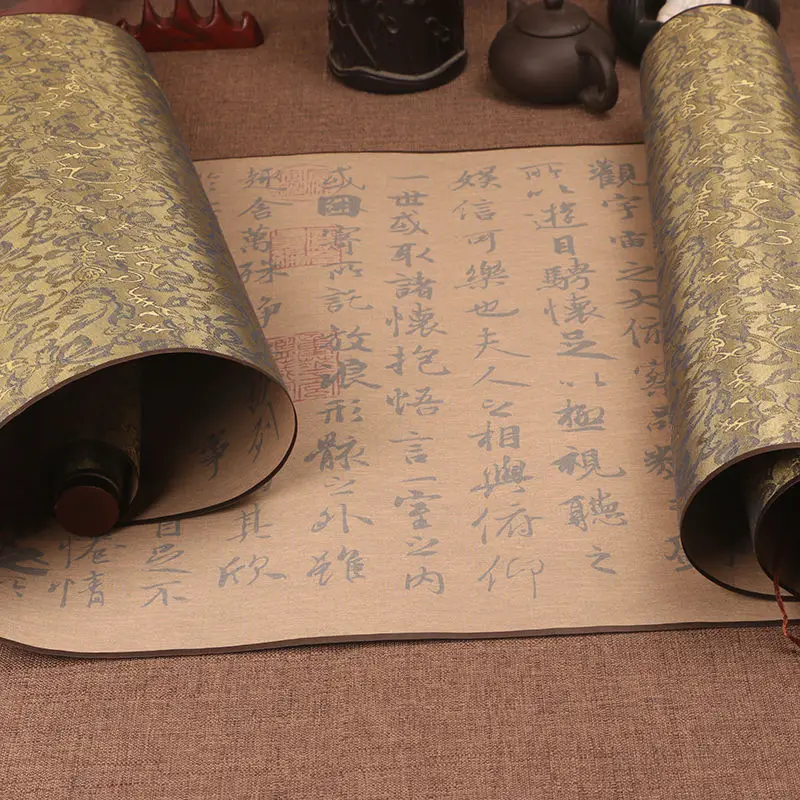 觀宇宙之大俯察品類之盛
所以遊目騁懷足以極視聽之
娛信可樂也夫人之相與俯仰
一世或取諸懷抱悟言一室之內
或因寄所託放浪形骸之外雖
趣舍萬殊靜其欣
自足不
倦情